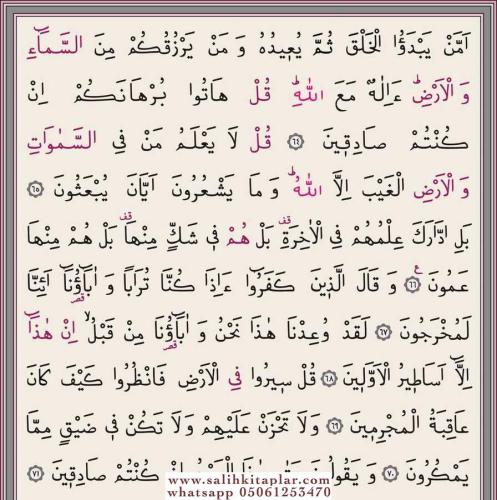 اَمَّنْ يَبْدَؤُا الْخَلْقَ ثُمَّ يُعٖيدُهُ وَ مَنْ يَرْزُقُكُمْ مِنَ السَّمَٓاءِ
وَ الْاَرْضِؕ ءَاِلٰهٌ مَعَ اللّٰهِؕ قُلْ هَاتُوا بُرْهَانَكُمْ اِنْ
كُنْتُمْ صَادِقٖينَ ﴿٦٤﴾ قُلْ لَا يَعْلَمُ مَنْ فِى السَّمٰوَاتِ
وَ الْاَرْضِ الْغَيْبَ اِلَّا اللّٰهُؕ وَ مَا يَشْعُرُونَ اَيَّانَ يُبْعَثُونَ ﴿٦٥﴾
بَلِ ادَّارَكَ عِلْمُهُمْ فِى الْاٰخِرَةِࣞ بَلْ هُمْ فٖى شَكٍّ مِنْهَاࣞ بَلْ هُمْ مِنْهَا
عَمُونَ ﴿٦٦﴾ وَ قَالَ الَّذٖينَ كَفَرُٓوا ءَاِذَا كُنَّا تُرَابًا وَ اٰبَٓاؤُنَٓا اَئِنَّا
لَمُخْرَجُونَ ﴿٦٧﴾ لَقَدْ وُعِدْنَا هٰذَا نَحْنُ وَ اٰبَٓاؤُنَا مِنْ قَبْلُۙ اِنْ هٰذَٓا
اِلَّٓا اَسَاطٖيرُ الْاَوَّلٖينَ ﴿٦٨﴾ قُلْ سٖيرُوا فِى الْاَرْضِ فَانْظُرُوا كَيْفَ كَانَ
عَاقِبَةُ الْمُجْرِمٖينَ ﴿٦٩﴾ وَلَا تَحْزَنْ عَلَيْهِمْ وَلَا تَكُنْ فٖى ضَيْقٍ مِمَّا
يَمْكُرُونَ ﴿٧٠﴾ وَ يَقُولُونَ كُنْتُمْ صَادِقٖينَ ﴿٧١﴾
www.salihkitaplar.com
whatsapp 05061253470